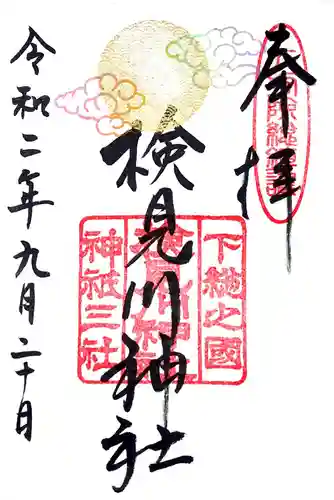 奉拝
検見川神社
令和二年九月二十日
下総之國
検見川神社
神祇三社